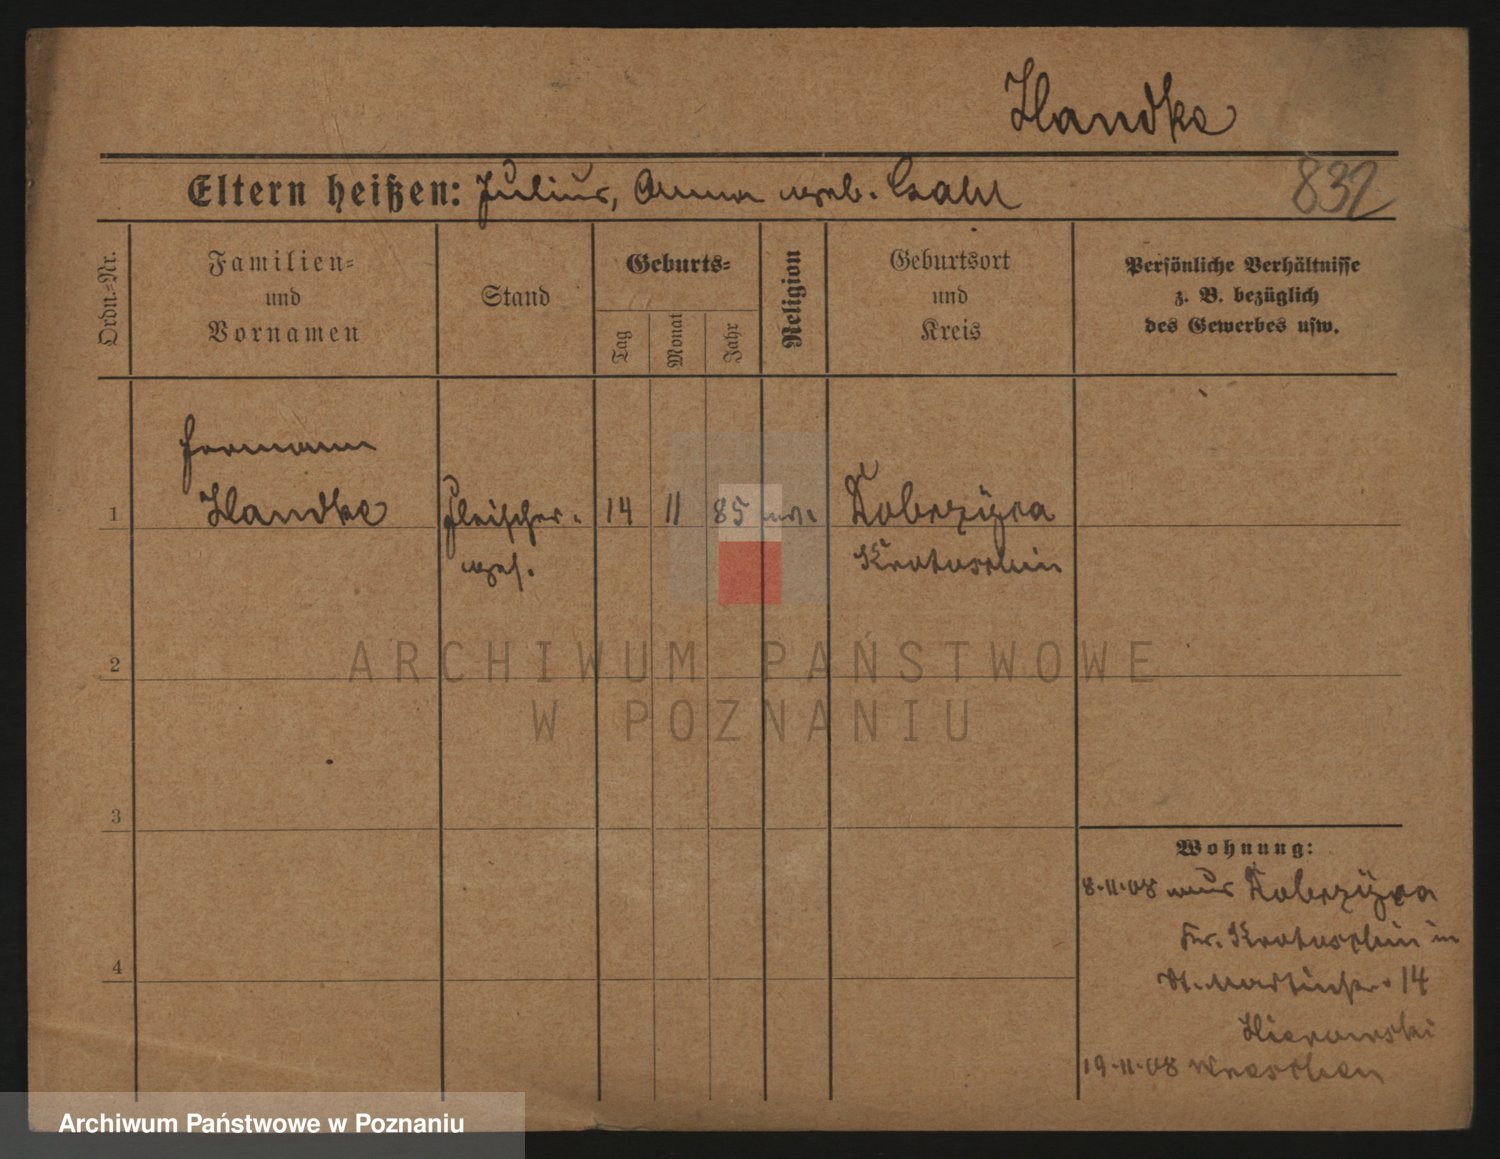 Handke
Eltern heißen: Julius, Anna geb.
832
Ordn.-Nr.
Familien-
und
Vornamen
Stand
Geburts-
Tag
Monat
Jahr
Religion
Geburtsort
und
Kreis
Persönliche Verhältnisse
z. B. bezüglich
des Gewerbes usw.
Hermann
1 Handke Fleischer- 14 11 85 ev. Dobrzyca
ges. Krotoschin
2
3
4
Wohnung:
8.11.08 aus Dobrzyca
Kr. Krotoschin in
St. Martinstr. 14
19.11.08 Wreschen
ARCHIWUM PAŃSTWOWE
W POZNANIU
Archiwum Państwowe w Poznaniu